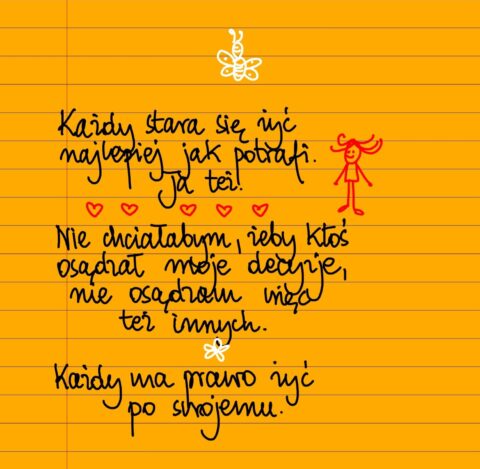 Każdy stara się żyć
najlepiej jak potrafi.
Ja też.
Nie chciałabym, żeby ktoś
osądzał moje decyzje,
nie osądzam więc
też innych.
Każdy ma prawo żyć
po swojemu.